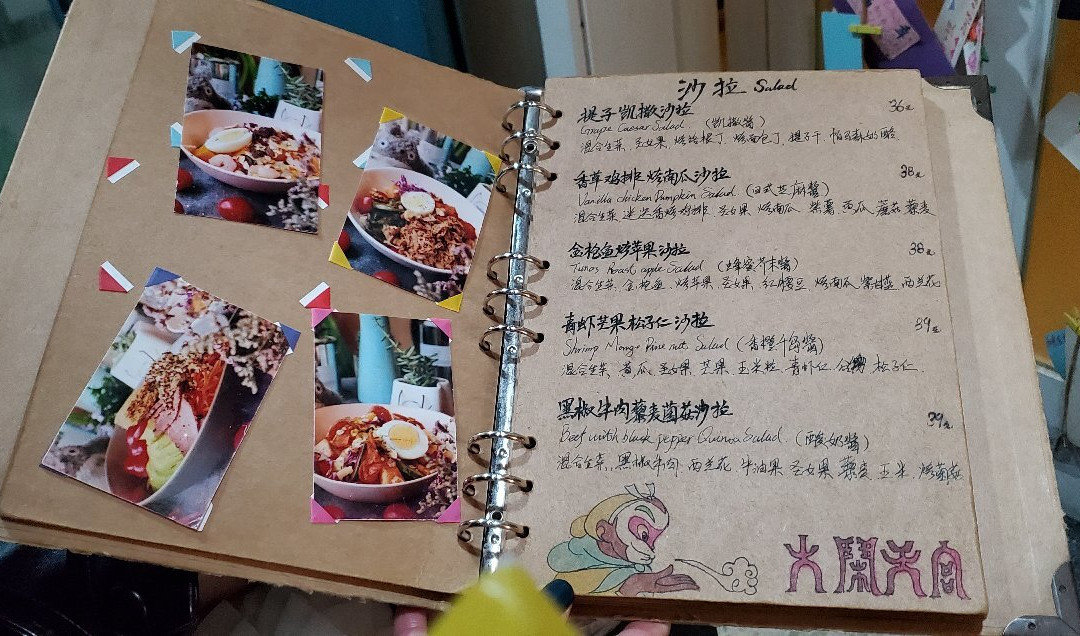 沙拉 Salad
提子凯撒沙拉 36元
Grape Caesar Salad (凯撒醬)
混合生菜, 圣女果, 烤培根丁, 烤面包丁, 提子干, 帕玛森奶酪
香草鸡排烤南瓜沙拉 38元
Vanilla chicken Pumpkin Salad (日式芝麻醬)
混合生菜 迷迭香烤鸡排 圣女果 烤南瓜 紫薯 黄瓜 蘑菇 藜麦
金枪鱼烤苹果沙拉 38元
Tunas Roast apple Salad (蜂蜜芥末醬)
混合生菜, 金枪鱼, 烤苹果, 圣女果, 红腰豆 烤南瓜 紫甘蓝 西兰花
青虾芒果松子仁沙拉 39元
Shrimp Mango Pine nut Salad (香橙千岛醬)
混合生菜 黄瓜 圣女果 芒果 玉米粒 青虾仁 松子仁
黑椒牛肉藜麦菌菇沙拉 39元
Beef with black pepper Quinoa Salad (酸奶醬)
混合生菜, 黑椒牛肉, 西兰花 牛油果 圣女果 藜麦 玉米 烤菌菇
大鬧天宫